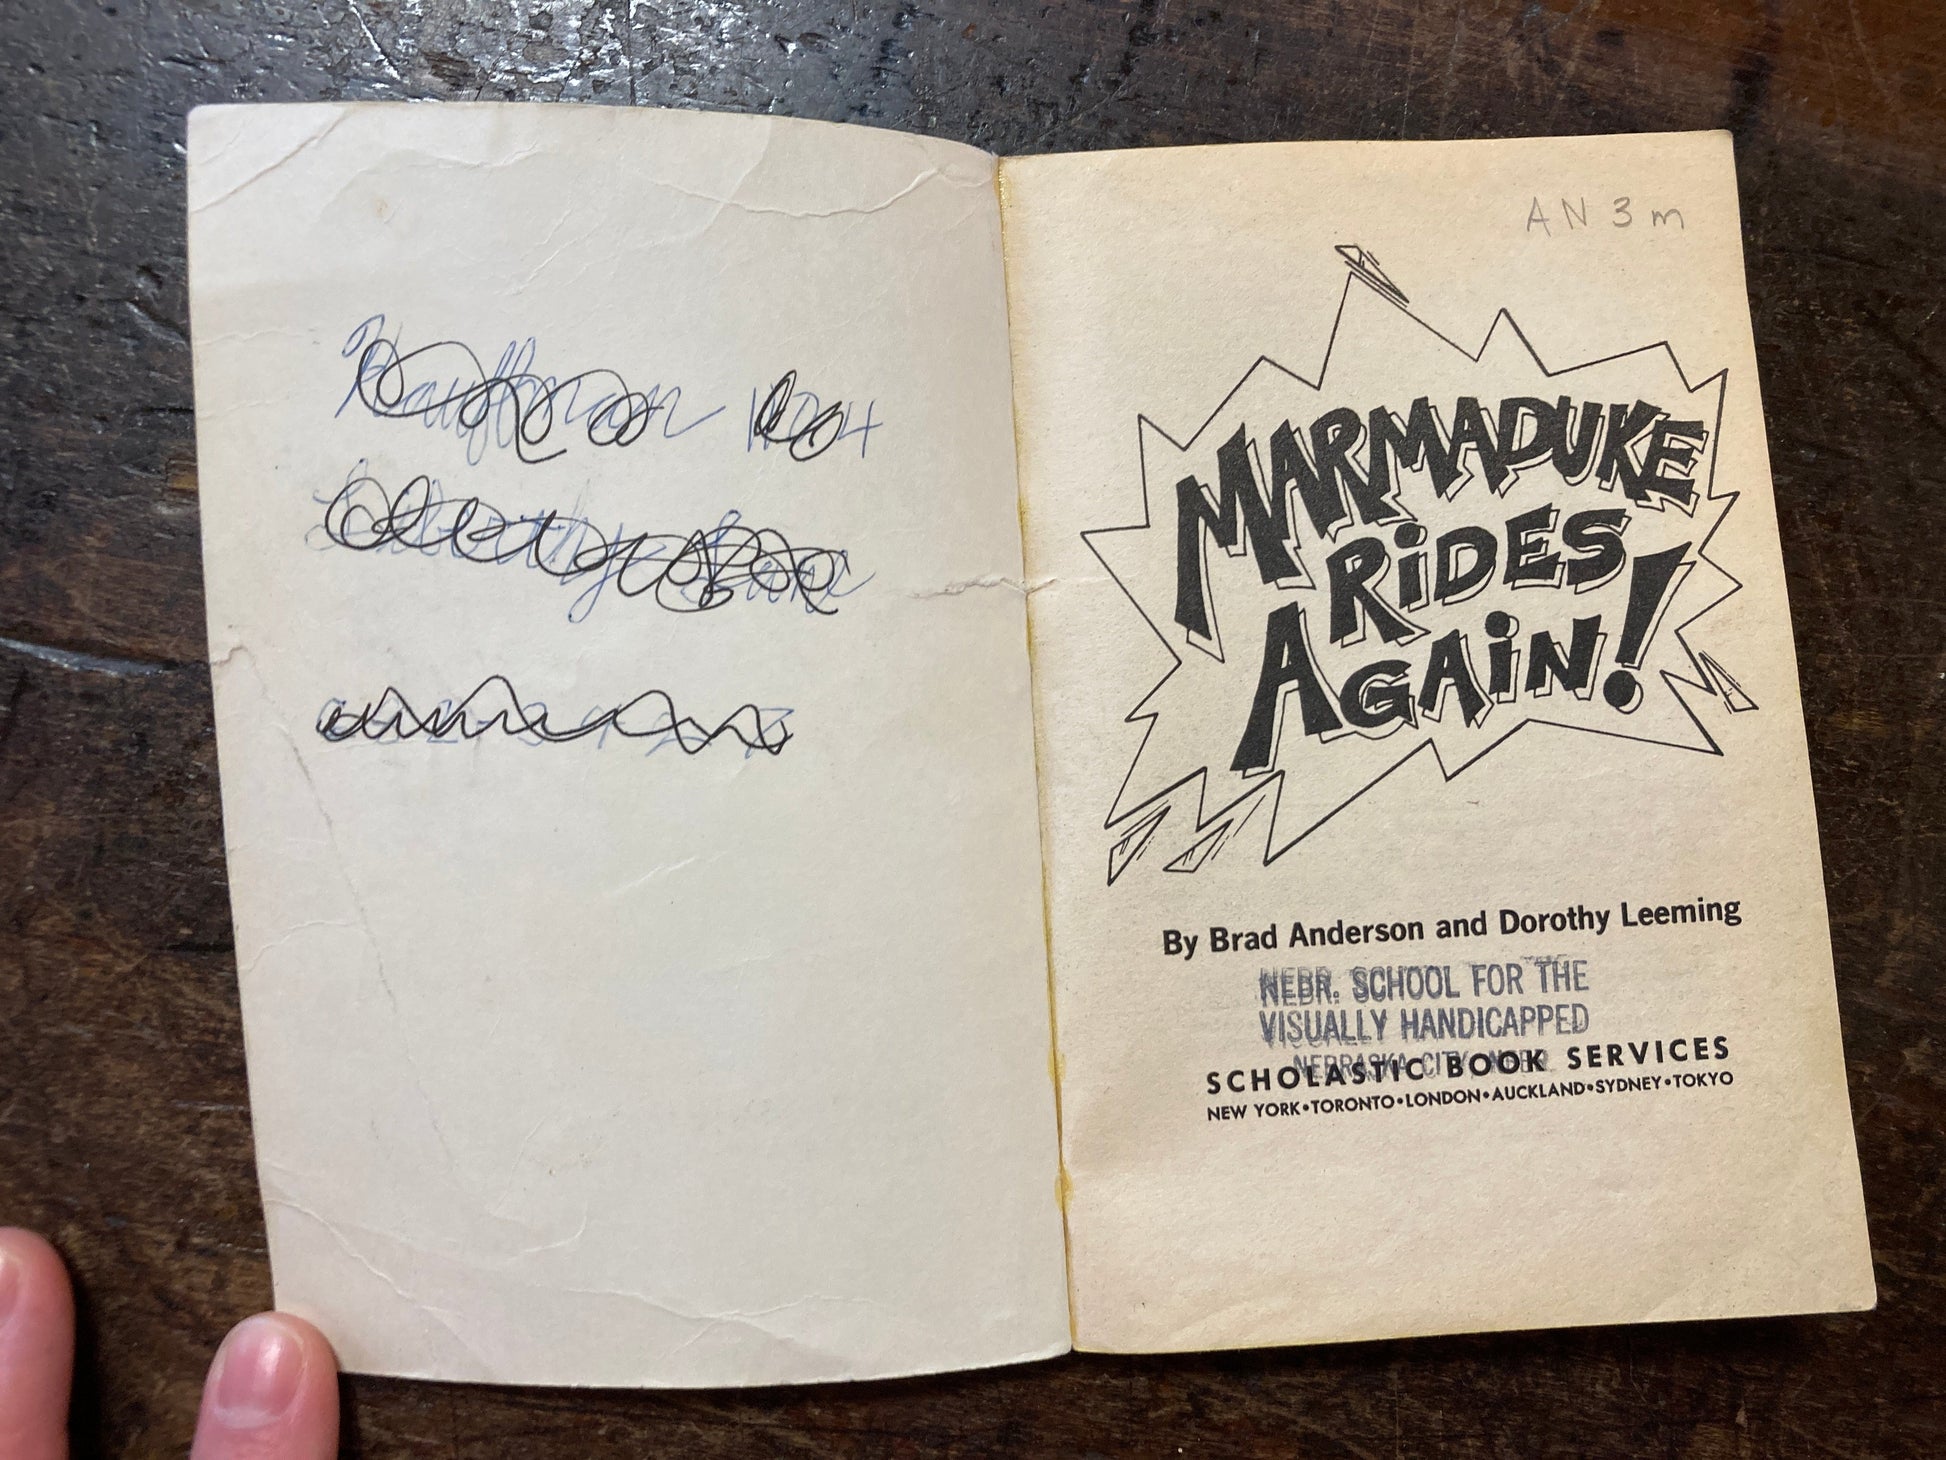 AN3m
MARMADUKE
RiDES
AGAiN!
By Brad Anderson and Dorothy Leeming
NEBR. SCHOOL FOR THE
VISUALLY HANDICAPPED
NEBRASKA CITY, NEBR.
SCHOLASTIC BOOK SERVICES
NEW YORK•TORONTO•LONDON•AUCKLAND•SYDNEY•TOKYO